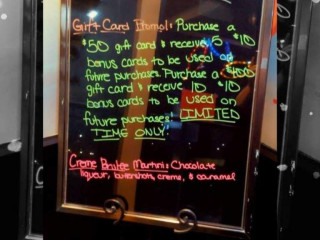 Gift Card Promo!: Purchase a
$50 gift card & receive 5 $10
bonus cards to be used on
future purchases. Purchase a $100
gift card & receive 10 $10
bonus cards to be used on
future purchases! LIMITED
TIME ONLY!
Creme Brulee Martini: Chocolate
liqueur, butershots, creme, & caramel